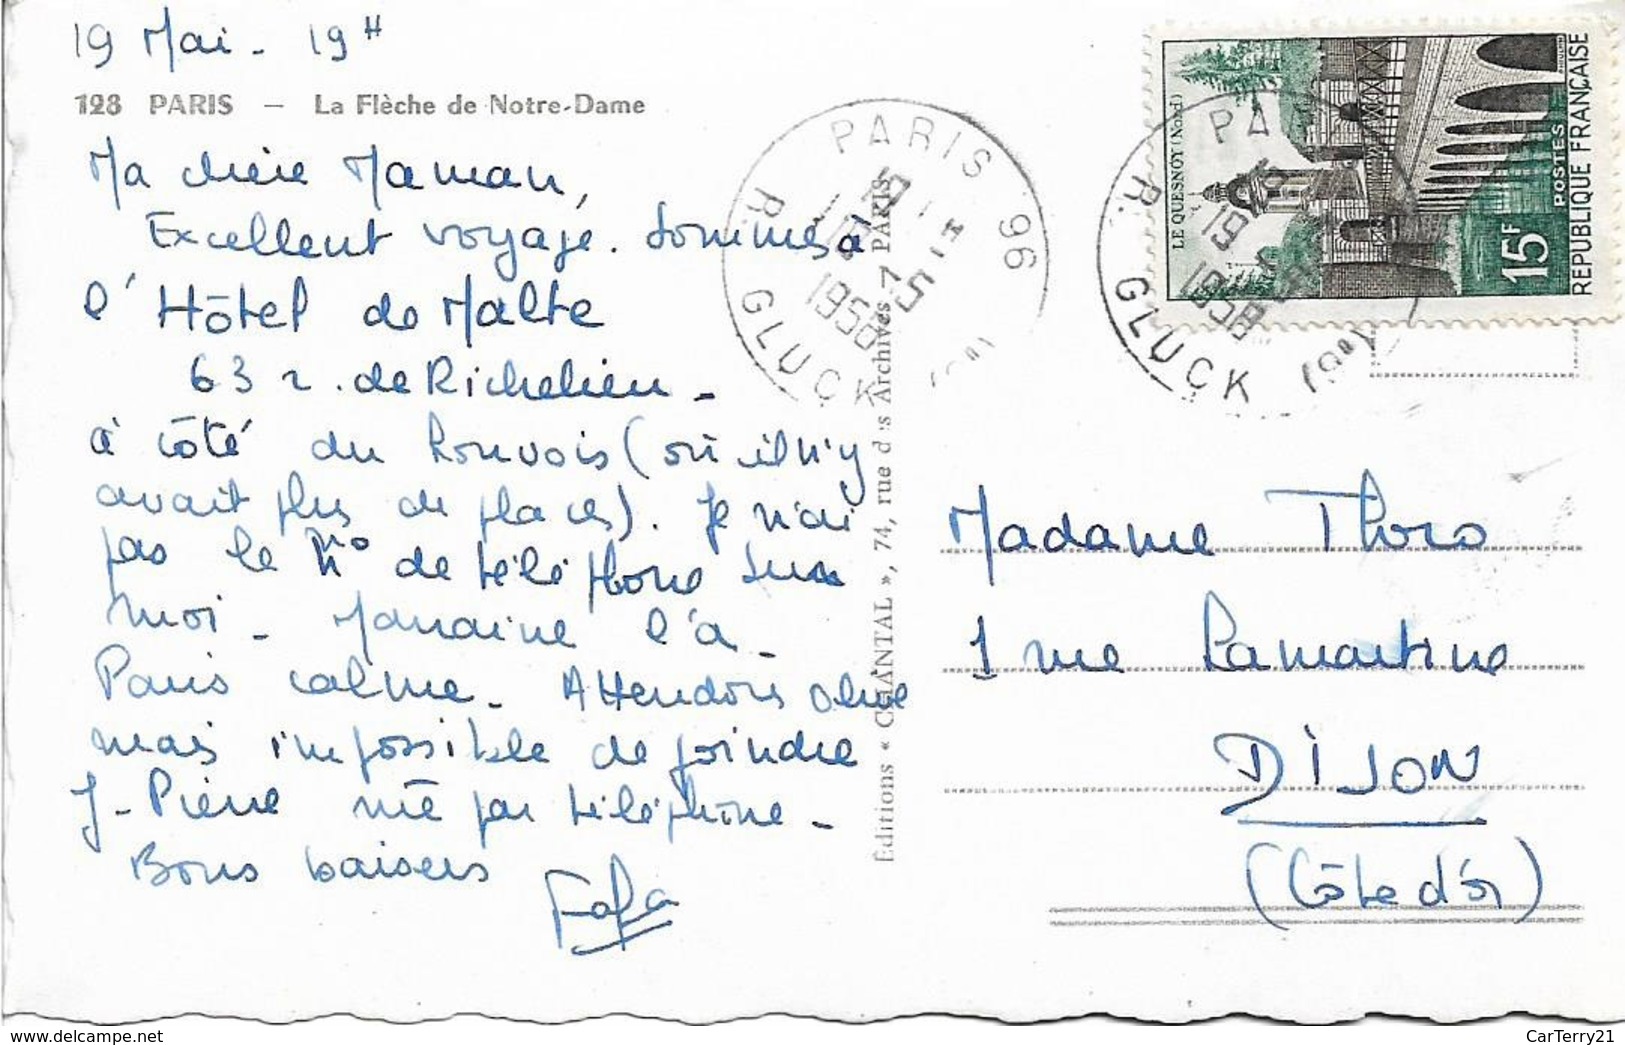 19 Mai - 19H
128 PARIS — La Flèche de Notre-Dame
Ma chère Maman,
Excellent voyage. Sommes à
l'Hôtel de Malte
63 r. de Richelieu -
à côté du Louvois (où il n'y
avait plus de places). Je n'ai
pas le n° de téléphone sur
moi - l'a -
Paris calme - Attendons
mais impossible de joindre
J-Pierre par téléphone -
Bons baisers
Editions « CHANTAL », 74, rue des Archives - PARIS
PARIS 96
19 - 5
1958
R. GLUCK (9e)
PARIS
19 - 5
1958
R. GLUCK (9e)
LE QUESNOY (Nord)
15F
POSTES
REPUBLIQUE FRANÇAISE
Madame Thoro
1 rue Lamartine
DIJON
(Côte d'Or)
CarTerry21
www.delcampe.net